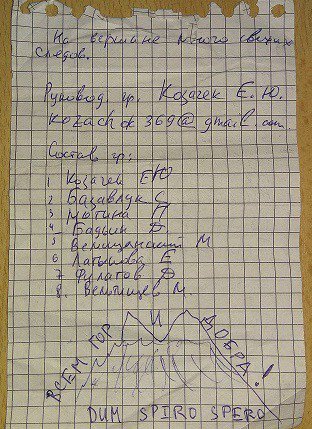 На вершине много свежих
следов.
Руковод. гр. Козачек Е.Ю.
369@gmail.com
Состав гр:
1 Козачек ЕЮ
2 Базавлук С
3 Мютина П
4 Бадьин Д
5 М
6 Латыпова Е
7 Филатов Д
8. М
ВСЕМ ГОР И ДОБРА!
DUM SPIRO SPERO